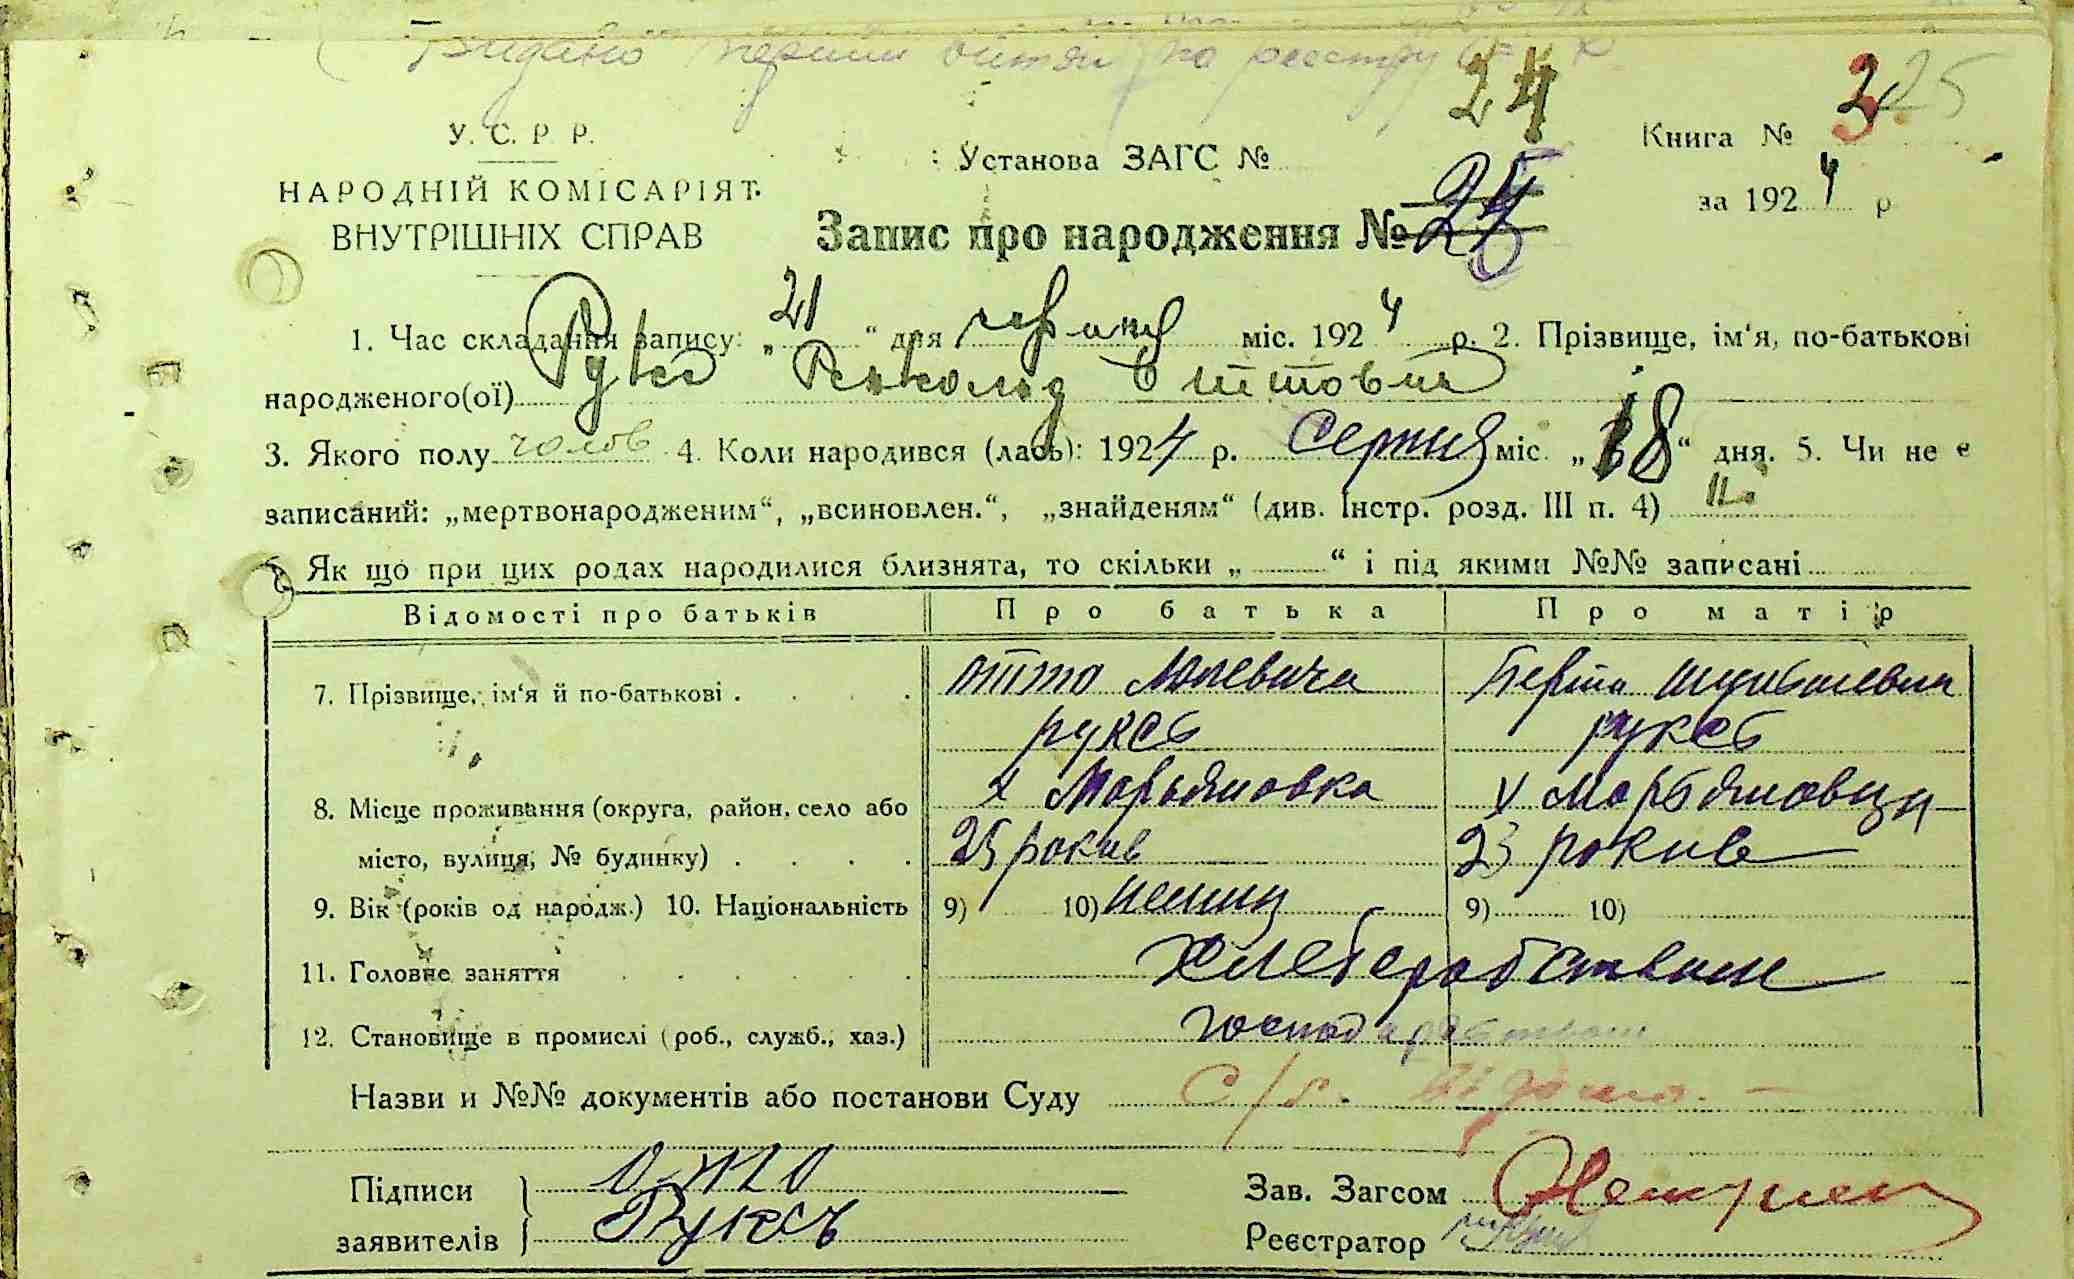 Видано перший витяг по реестру
24
325
У. С. Р. Р.
НАРОДНІЙ КОМІСАРІЯТ
ВНУТРІШНІХ СПРАВ
Установа ЗАГС №
Книга №
за 1924 р
Запис про народження № 25
1. Час складання запису: „21“ дня міс. 1924 р. 2. Прізвище, ім‘я, по-батькові
народженого(ої) Рукс Оттович
3. Якого полу чолов 4. Коли народився (лась): 1924 р. Серпня міс. „18“ дня. 5. Чи не є
записаний: „мертвонародженим“, „всиновлен.“, „знайденям“ (див. Інстр. розд. III п. 4)
6. Як що при цих родах народилися близнята, то скільки „ “ і під якими №№ записані
Відомості про батьків Про батька Про матір
7. Прізвище, ім‘я й по-батькові . . . Отто Юлевича Берта
Руксъ Руксъ
8. Місце проживання (округа, район, село або х Марьяновка
місто, вулиця, № будинку) . . . . 25 рокив 23 рокив
9. Вік (років од народж.) 10. Національність 9) 10) немиц 9) 10)
11. Головне заняття . . . . . хлеборобством
12. Становище в промислі (роб., служб., хаз.)
Назви и №№ документів або постанови Суду с/г. відома. —
Підписи Отто
заявителів Руксъ
Зав. Загсом
Реєстратор